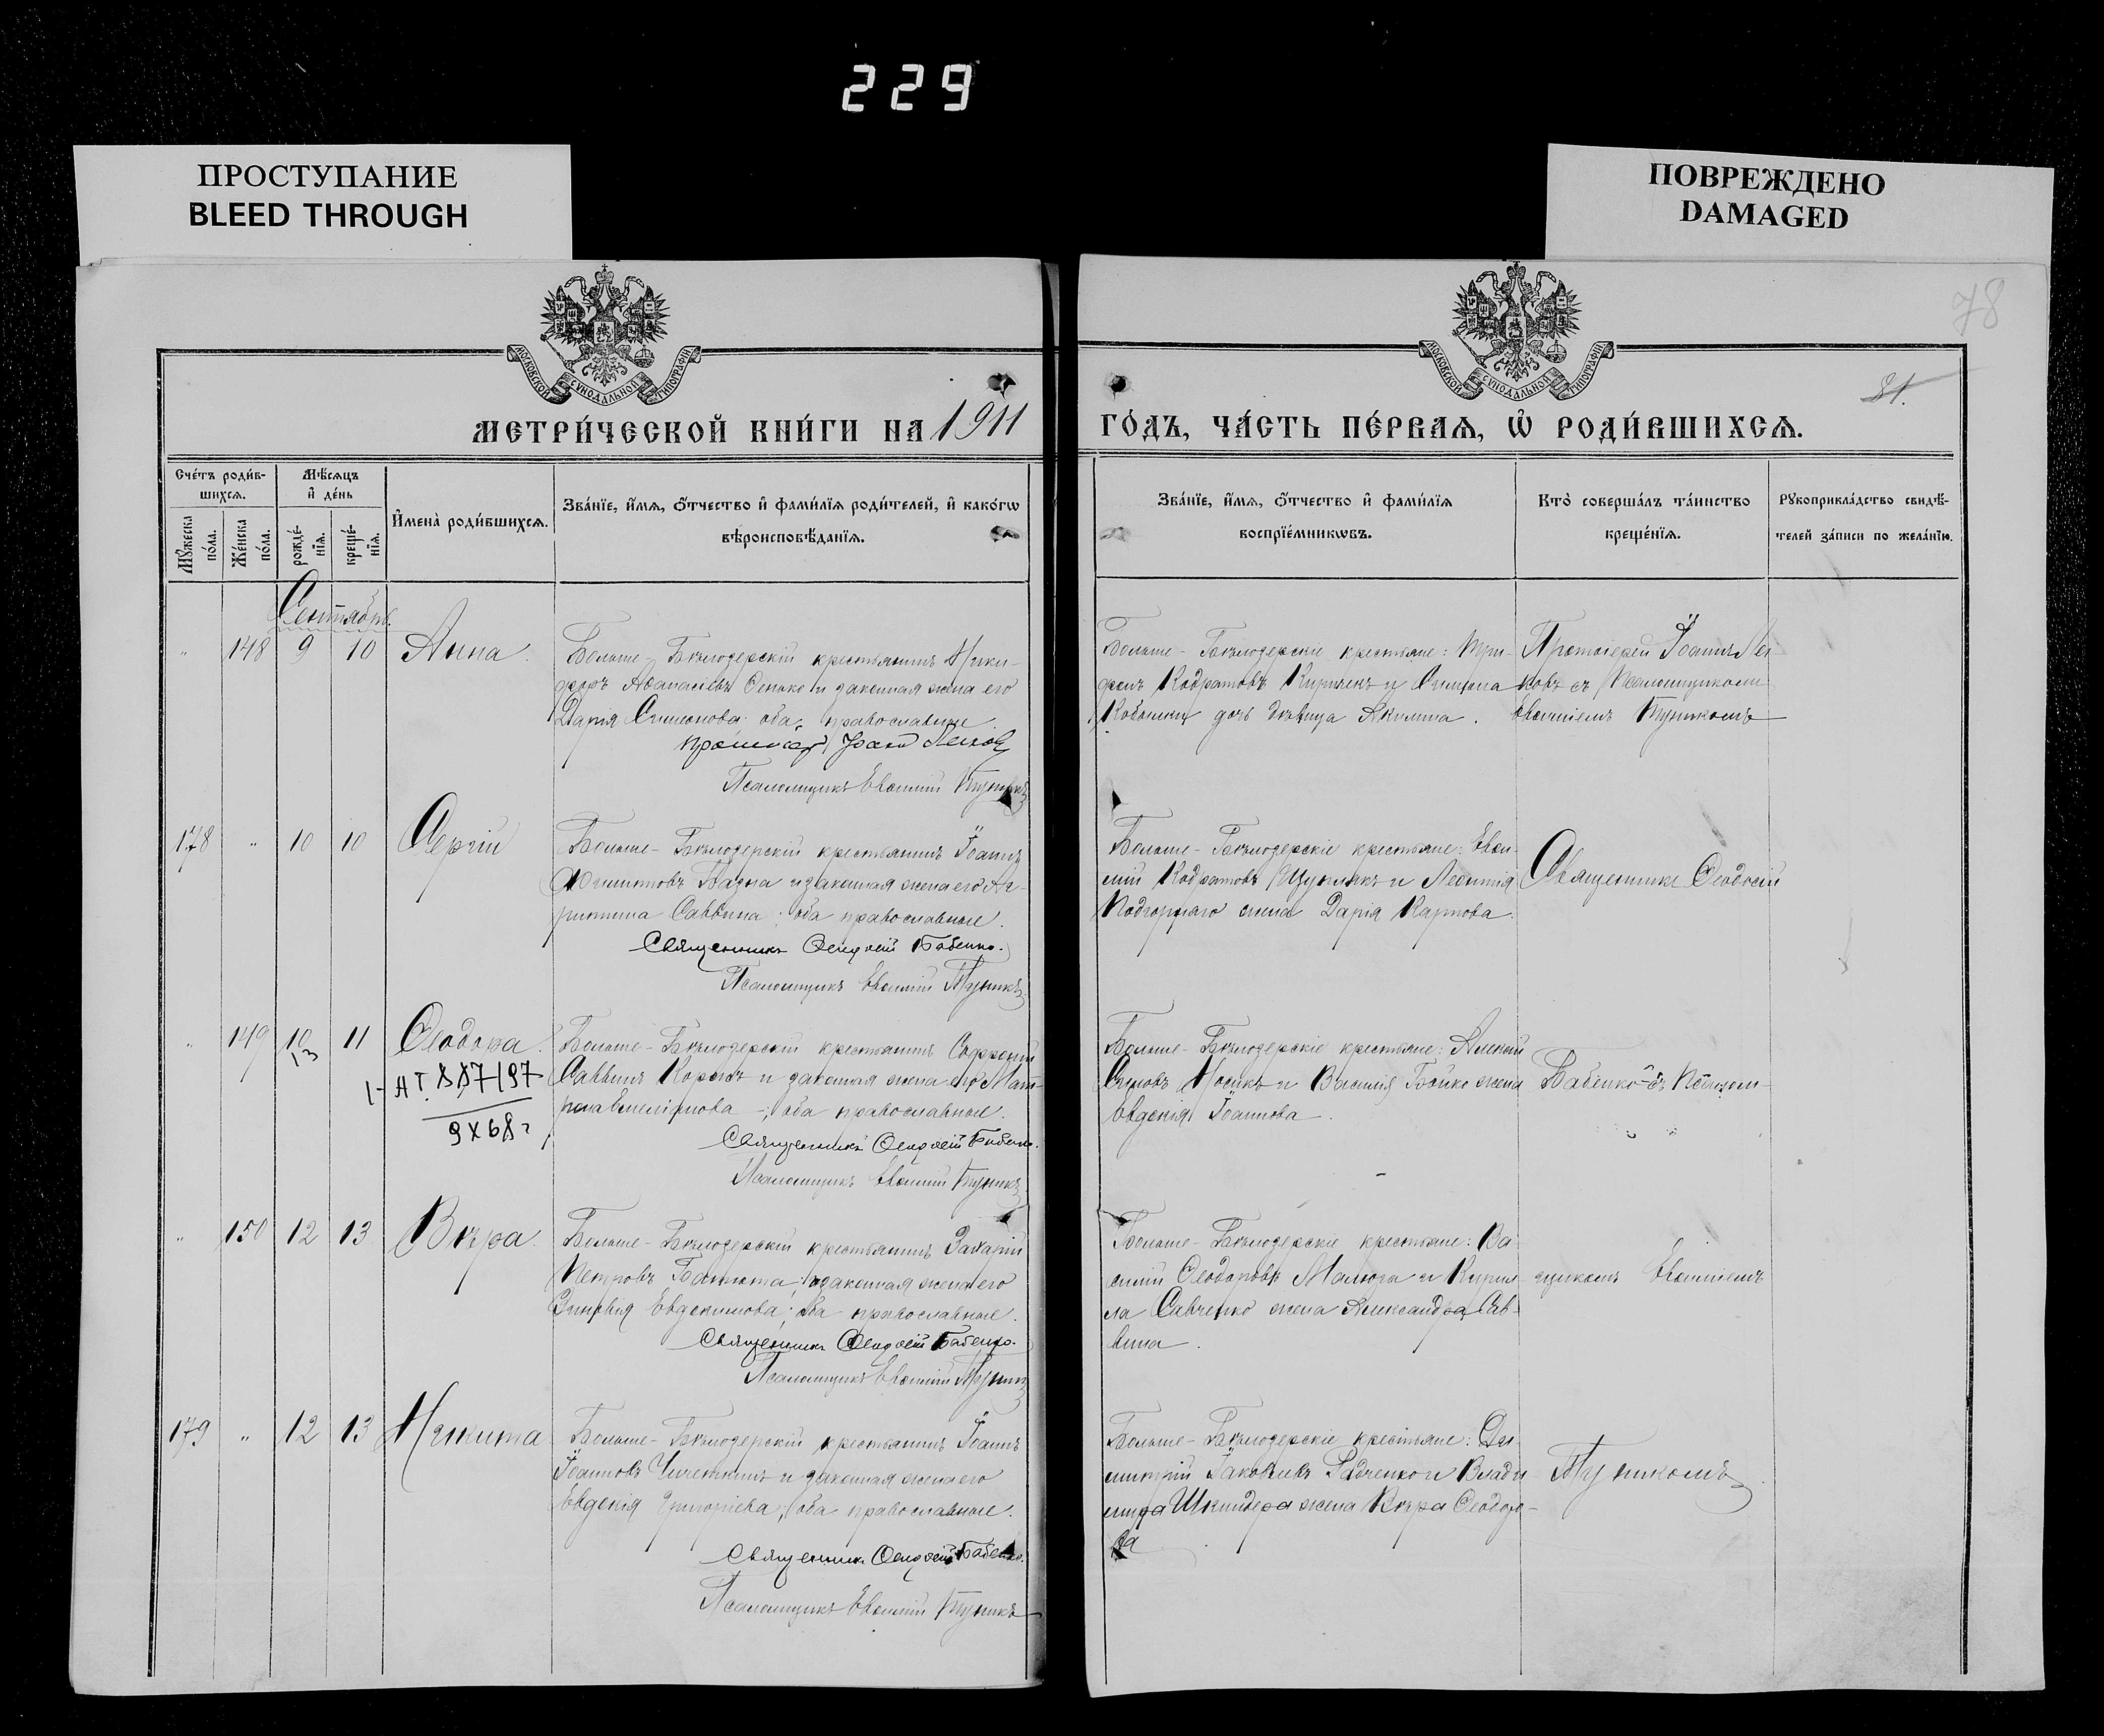 229
ПРОСТУПАНИЕ
BLEED THROUGH
ПОВРЕЖДЕНО
DAMAGED
78
МОСКОВСКОЙ СѴНОДАЛЬНОЙ ТИПОГРАФІИ
МОСКОВСКОЙ СѴНОДАЛЬНОЙ ТИПОГРАФІИ
81.
МЕТРИ́ЧЕСКОЙ КНИ́ГИ НА 1911
ГО́ДЪ, ЧА́СТЬ ПЕ́РВАЯ, Ѡ҆ РОДИ́ВШИХСЯ.
Сче́тъ роди́в-
шихся.
Мѣ́сяцъ
и҆ де́нь
Мꙋжеска
по́ла.
Же́нска
по́ла.
рожде́-
нїя.
креще́-
нїя.
И҆мена̀ роди́вшихся.
Зва́нїе, и҆́мя, ѻ҆́тчество и҆ фами́лїя роди́телей, и҆ како́гѡ
вѣроисповѣ́данїя.
Зва́нїе, и҆́мя, ѻ҆́тчество и҆ фами́лїя
воспрїе́мникѡвъ.
Кто̀ соверша́лъ та́инство
креще́нїя.
Рꙋкоприкла́дство свидѣ́-
телей за́писи по жела́нїю.
Сентябрь.
" 148 9 10 Анна.
Больше-Бѣлозерскій крестьянинъ Ники-
форъ Аѳанасіевъ и законная жена его
Дарія Симонова оба православные.
Протоіерей Іоаннъ
Псаломщикъ Евѳимій Туникъ
Больше-Бѣлозерскіе крестьяне: Три-
фонъ Кодратовъ и
дочь дѣвица Акилина.
Протоіерей Іоаннъ
съ Псаломщикомъ
Евѳиміемъ Туникомъ
178 " 10 10 Сергій
Больше-Бѣлозерскій крестьянинъ Іоаннъ
и законная жена его Аг-
рипина Саввина; оба православные.
Священникъ Ѳеодосій Бабенко.
Псаломщикъ Евѳимій Туникъ
Больше-Бѣлозерскіе крестьяне: Евѳи-
мій Кодратовъ и Леонтія
Подгорнаго жена Дарія Карпова.
Священникъ Ѳеодосій
" 149 10 11 Ѳеодора.
13
9 X 68 г
Больше-Бѣлозерскій крестьянинъ Софроній
Саввинъ и законная жена его Мат-
рона Емеліянова; оба православные.
Священникъ Ѳеодосій Бабенко.
Псаломщикъ Евѳимій Туникъ
Больше-Бѣлозерскіе крестьяне: Алексій
Носикъ и Василія Бойко жена
Евдокія Іоаннова.
Бабенко съ Псалом-
" 150 12 13 Вѣра.
Больше-Бѣлозерскій крестьянинъ Захарій
Петровъ и законная жена его
Зиновія Евдокимова; оба православные.
Священникъ Ѳеодосій Бабенко.
Псаломщикъ Евѳимій Туникъ
Больше-Бѣлозерскіе крестьяне: Ва-
силій Ѳеодоровъ Малюга и Кирил-
ла Савченко жена Александра Сав-
вина.
щикомъ Евѳиміемъ
179 " 12 13 Никита
Больше-Бѣлозерскій крестьянинъ Іоаннъ
Іоанновъ и законная жена его
Евдокія Григоріева; оба православные.
Священникъ Ѳеодосій Бабенко.
Псаломщикъ Евѳимій Туникъ
Больше-Бѣлозерскіе крестьяне: Ди-
митрій Іаковлевъ Радченко и Влади-
мира Шкиндера жена Вѣра Ѳеодоро-
ва
Туникомъ.